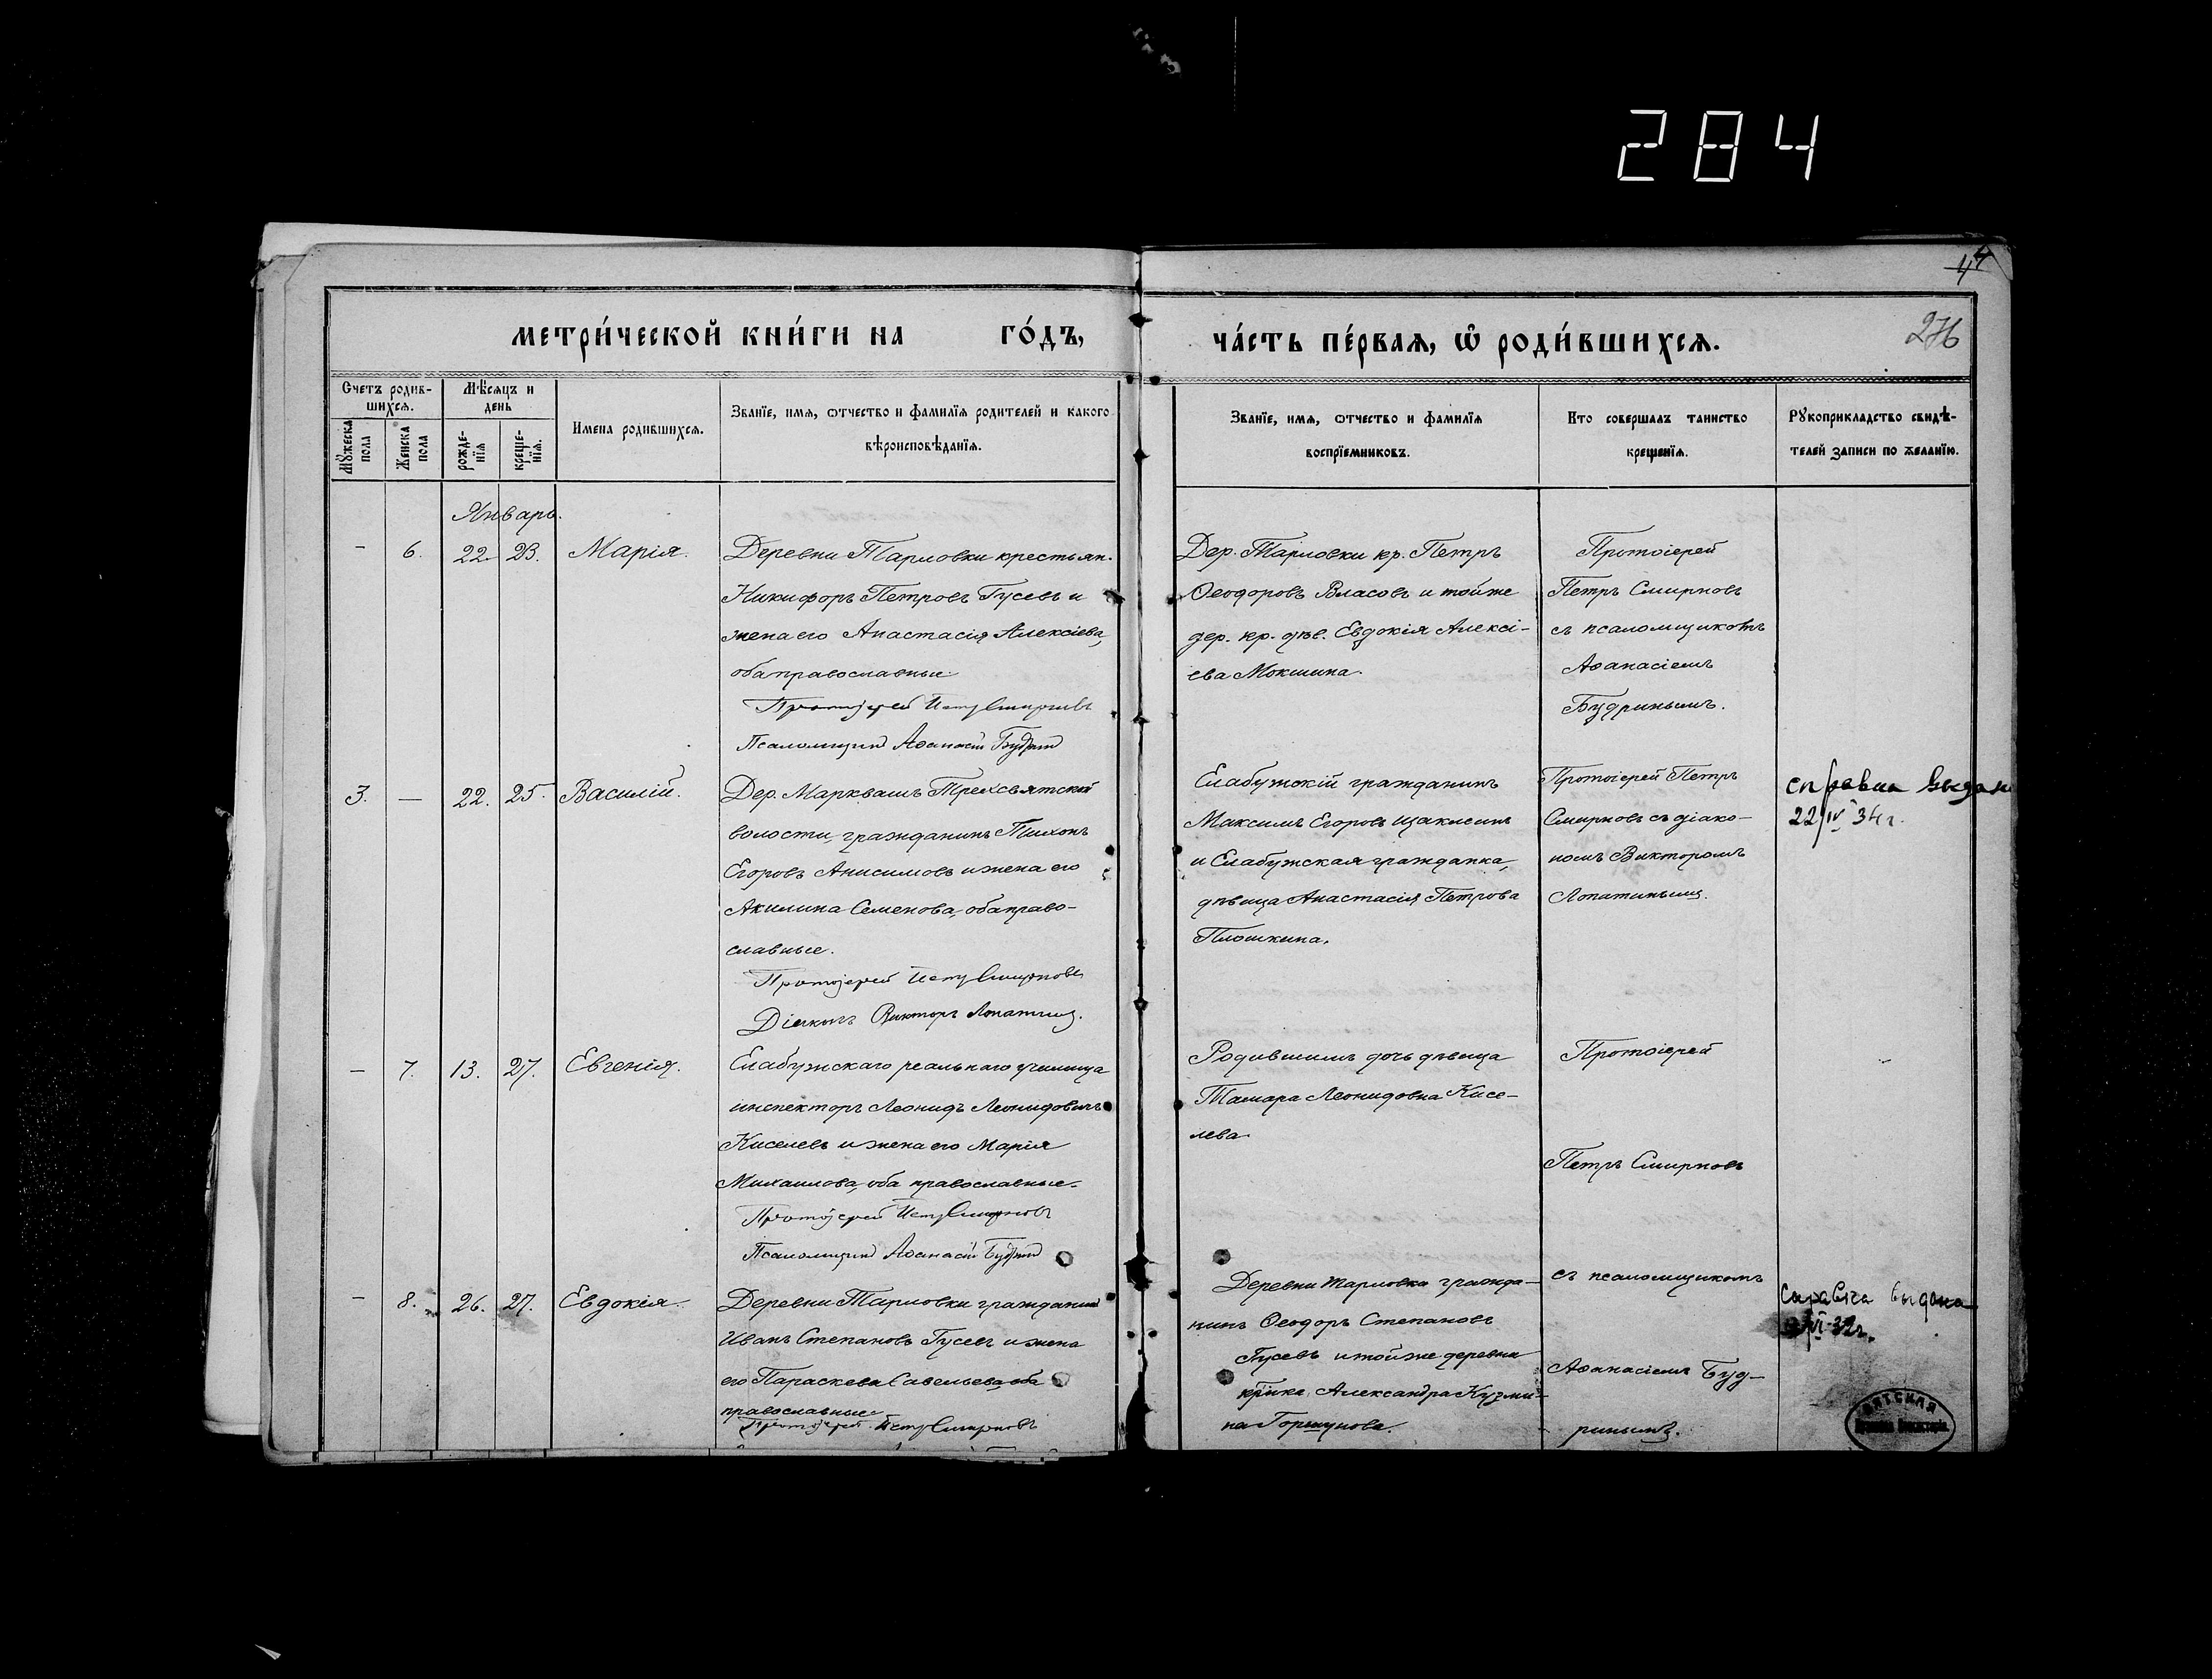 284
44
МЕТРИ́ЧЕСКОЙ КНИ́ГИ НА ГО́ДЪ,
ЧА́СТЬ ПЕ́РВАЯ, Ѡ РОДИ́ВШИХСЯ.
276
Счетъ родив-
шихся.
Мѣсяцъ и
день
Мужеска
пола
Женска
пола
рожде-
нїя
креще-
нїя.
Имена родившихся.
Званїе, имя, отчество и фамилїя родителей и какого
вѣроисповѣданїя.
Званїе, имя, отчество и фамилїя
воспрїемниковъ.
Кто совершалъ таинство
крещенїя.
Рукоприкладство свидѣ-
телей записи по желанїю.
Январь.
- 6. 22. 23. Марія.
Деревни Тарловки крестьян.
Никифоръ Петровъ Гусевъ и
жена его Анастасія Алексіева,
оба православные
Протоіерей Петръ Смирновъ
Псаломщикъ Аѳанасій Будринъ
Дер. Тарловки кр. Петръ
Ѳеодоровъ Власовъ и той же
дер. кр. дѣв. Евдокія Алексі-
ева Мокшина.
Протоіерей
Петръ Смирновъ
съ псаломщикомъ
Аѳанасіемъ
Будринымъ.
3. — 22. 25. Василій.
Дер. Марквашъ Трехсвятской
волости, гражданинъ Тихонъ
Егоровъ Анисимовъ и жена его
Акилина Семенова, оба право-
славные.
Протоіерей Петръ Смирновъ
Діаконъ Викторъ Лопатинъ.
Елабужскій гражданинъ
Максимъ Егоровъ Щаклеинъ
и Елабужская гражданка,
дѣвица Анастасія Петрова
Плошкина.
Протоіерей Петръ
Смирновъ съ діако-
номъ Викторомъ
Лопатинымъ.
справка выдан
22/IV 34 г.
— 7. 13. 27. Евгенія.
Елабужскаго реальнаго училища
инспекторъ Леонидъ Леонидовичъ
Киселевъ и жена его Марія
Михаилова, оба православные.
Протоіерей Петръ Смирновъ
Псаломщикъ Аѳанасій Будринъ
Родившимъ дочь дѣвица
Тамара Леонидовна Кисе-
лева.
Протоіерей
Петръ Смирновъ
- 8. 26. 27. Евдокія.
Деревни Тарловки гражданинъ
Иванъ Степановъ Гусевъ и жена
его Параскева Савельева, оба
православные
Протоіерей Петръ Смирновъ
Деревни Тарловки гражда-
нинъ Ѳеодоръ Степановъ
Гусевъ и той же деревни
Александра Кузми-
на Горшунова.
съ псаломщикомъ
Аѳанасіемъ Буд-
ринымъ.
Справка выдана
VI 32 г.
ВЯТСКАЯ